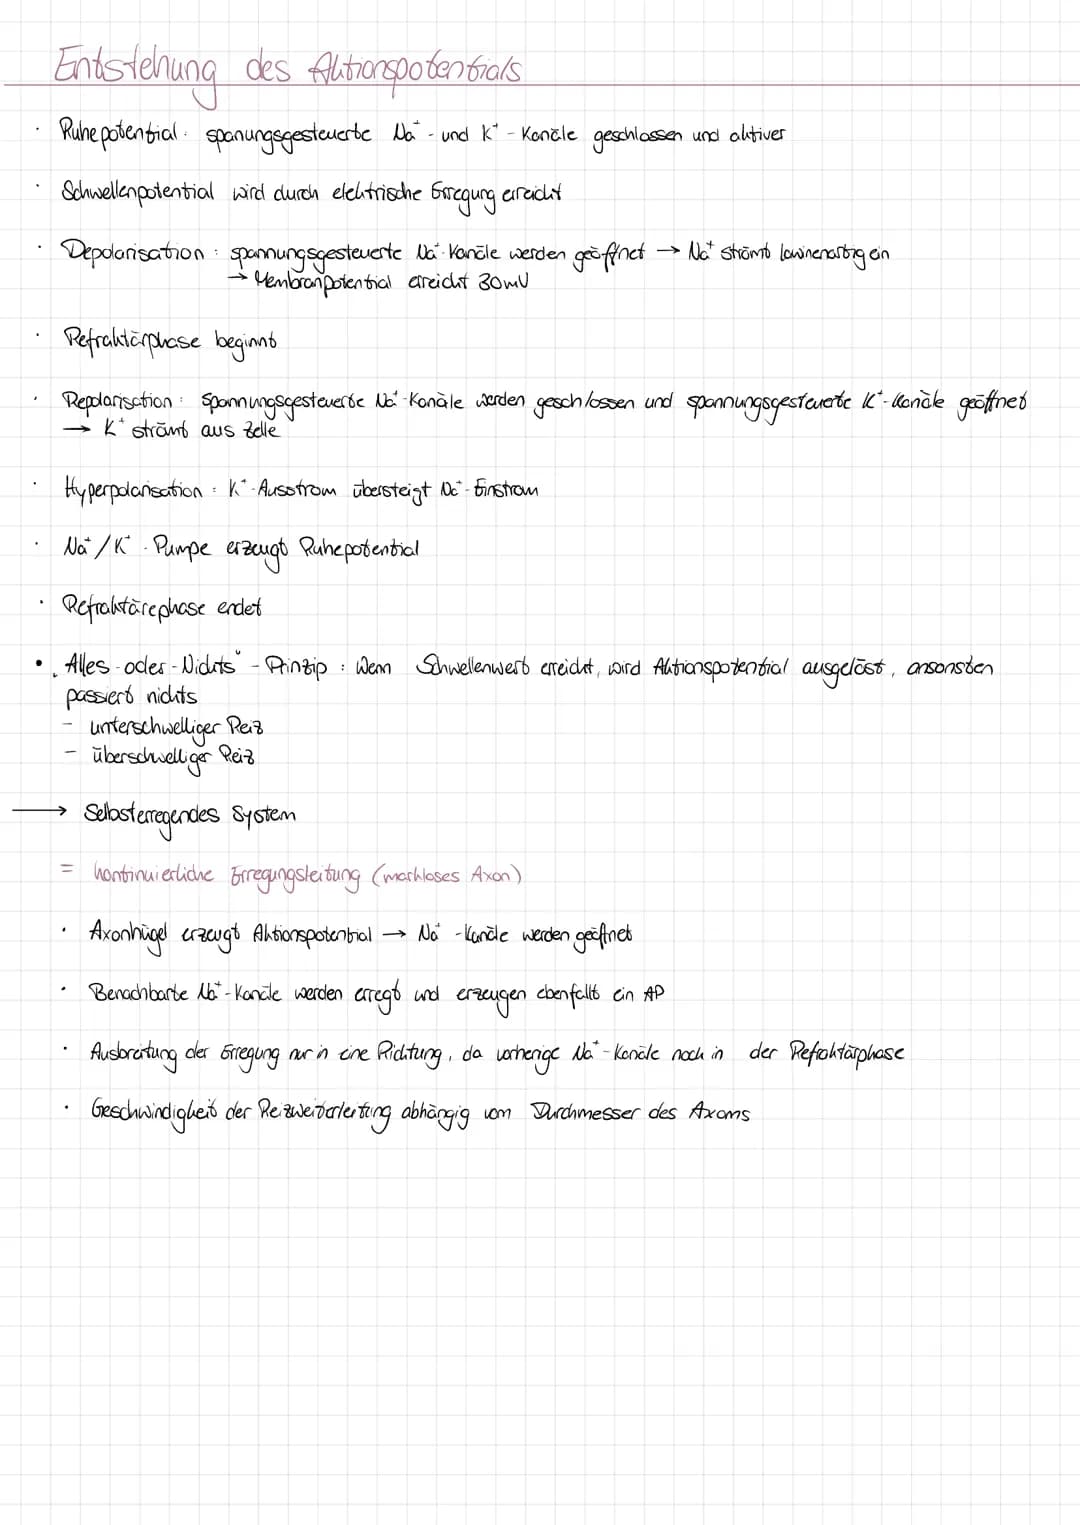 Entstehung des Aktionspotentials
· Ruhepotential: spanungsgesteuerte Na⁺- und K⁺-Kanäle geschlossen und aktiver
· Schwellenpotential wird durch elektrische Erregung erreicht
· Depolarisation: spannungsgesteuerte Na⁺-Kanäle werden geöffnet → Na⁺ strömt lawinenartig ein
→ Membranpotential erreicht 30mV
· Refraktärphase beginnt
· Repolarisation: Spannungsgesteuerte Na⁺-Kanäle werden geschlossen und spannungsgesteuerte K⁺-Kanäle geöffnet
→ K⁺ strömt aus Zelle
· Hyperpolarisation: K⁺-Ausstrom übersteigt Na⁺-Einstrom
· Na⁺/K⁺-Pumpe erzeugt Ruhepotential
· Refraktärephase endet
• „Alles-oder-Nichts“-Prinzip: Wenn Schwellenwert erreicht, wird Aktionspotential ausgelöst, ansonsten
passiert nichts
- unterschwelliger Reiz
- überschwelliger Reiz
→ Selbsterregendes System
= kontinuierliche Erregungsleitung (markloses Axon)
· Axonhügel erzeugt Aktionspotential → Na⁺-Kanäle werden geöffnet
· Benachbarte Na⁺-Kanäle werden erregt und erzeugen ebenfalls ein AP
· Ausbreitung der Erregung nur in eine Richtung, da vorherige Na⁺-Kanäle noch in der Refraktärphase
· Geschwindigkeit der Reizweiterleitung abhängig vom Durchmesser des Axoms